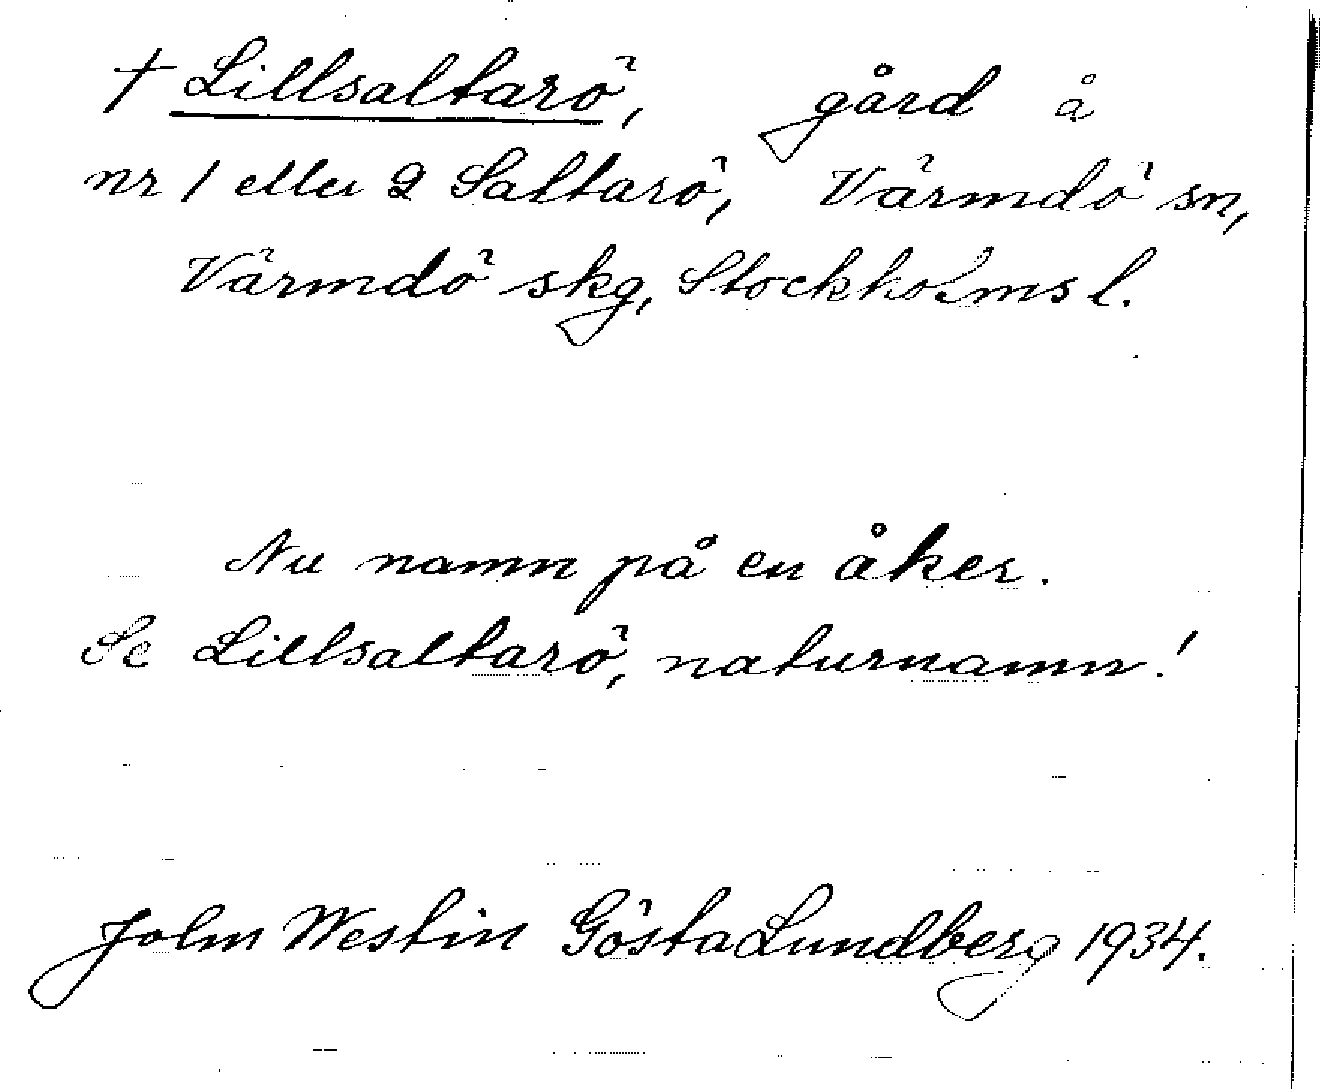 † Lillsaltarö, gård å
nr 1 eller 2 Saltarö, Värmdö sn,
Värmdö skg, Stockholms l.
Nu namn på en åker.
Se Lillsaltarö, naturnamn!
John Westin Gösta Lundberg 1934.